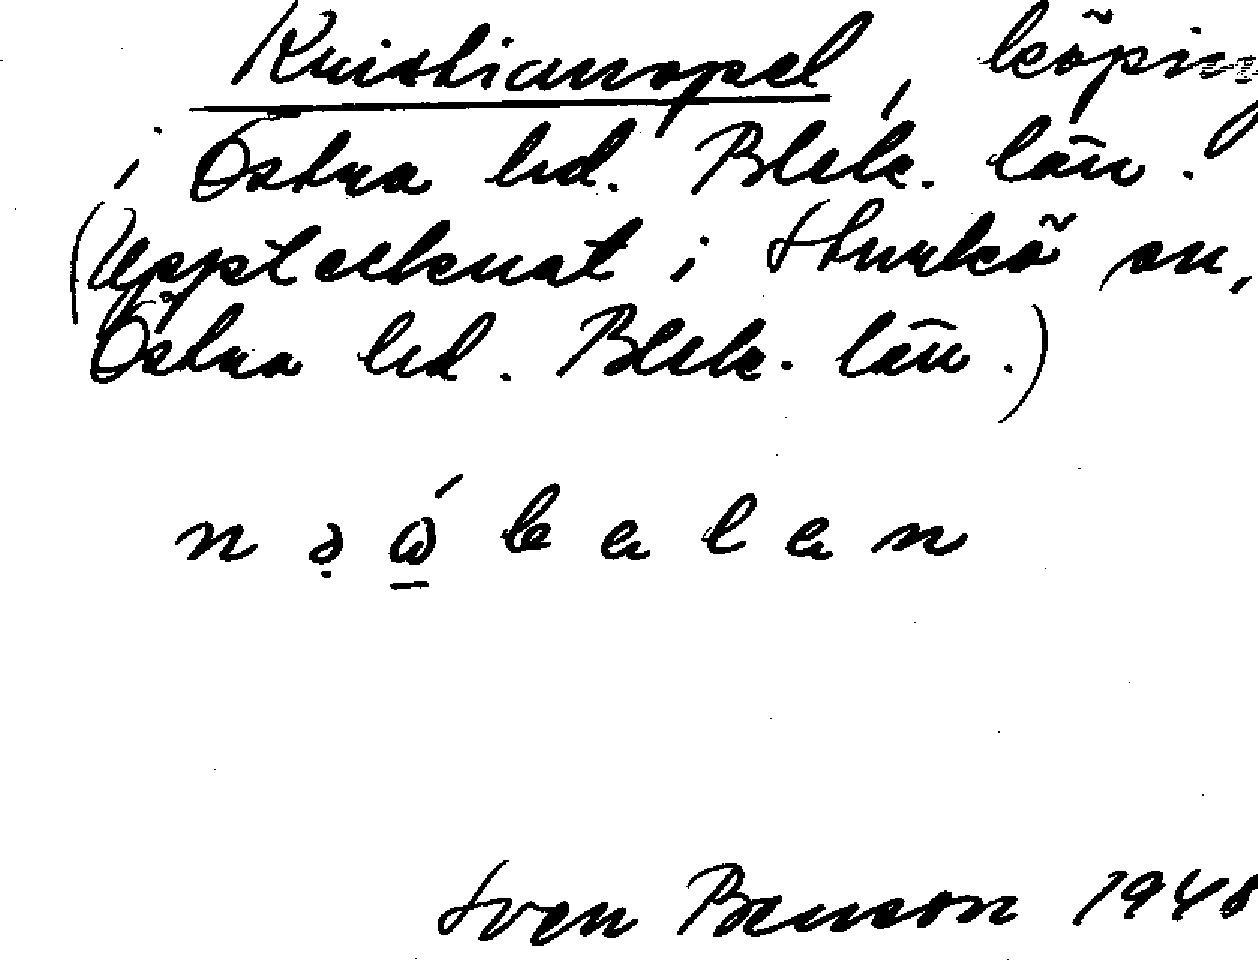 Kristianopel, köping
i Östra hd. Blek. län.
(Upptecknat i Sturkö sn,
Östra hd. Blek. län.)
Sven Benson 194